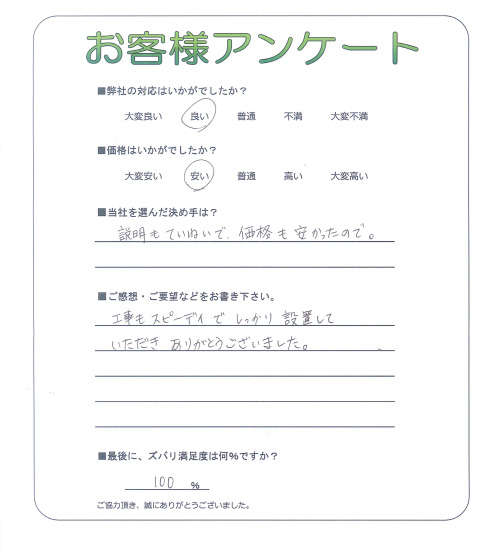 お客様アンケート
■弊社の対応はいかがでしたか？
大変良い 良い 普通 不満 大変不満
■価格はいかがでしたか？
大変安い 安い 普通 高い 大変高い
■当社を選んだ決め手は？
説明もていねいで、価格も安かったので。
■ご感想・ご要望などをお書き下さい。
工事もスピーディで しっかり 設置して
いただき ありがとうございました。
■最後に、ズバリ満足度は何%ですか？
100 %
ご協力頂き、誠にありがとうございました。